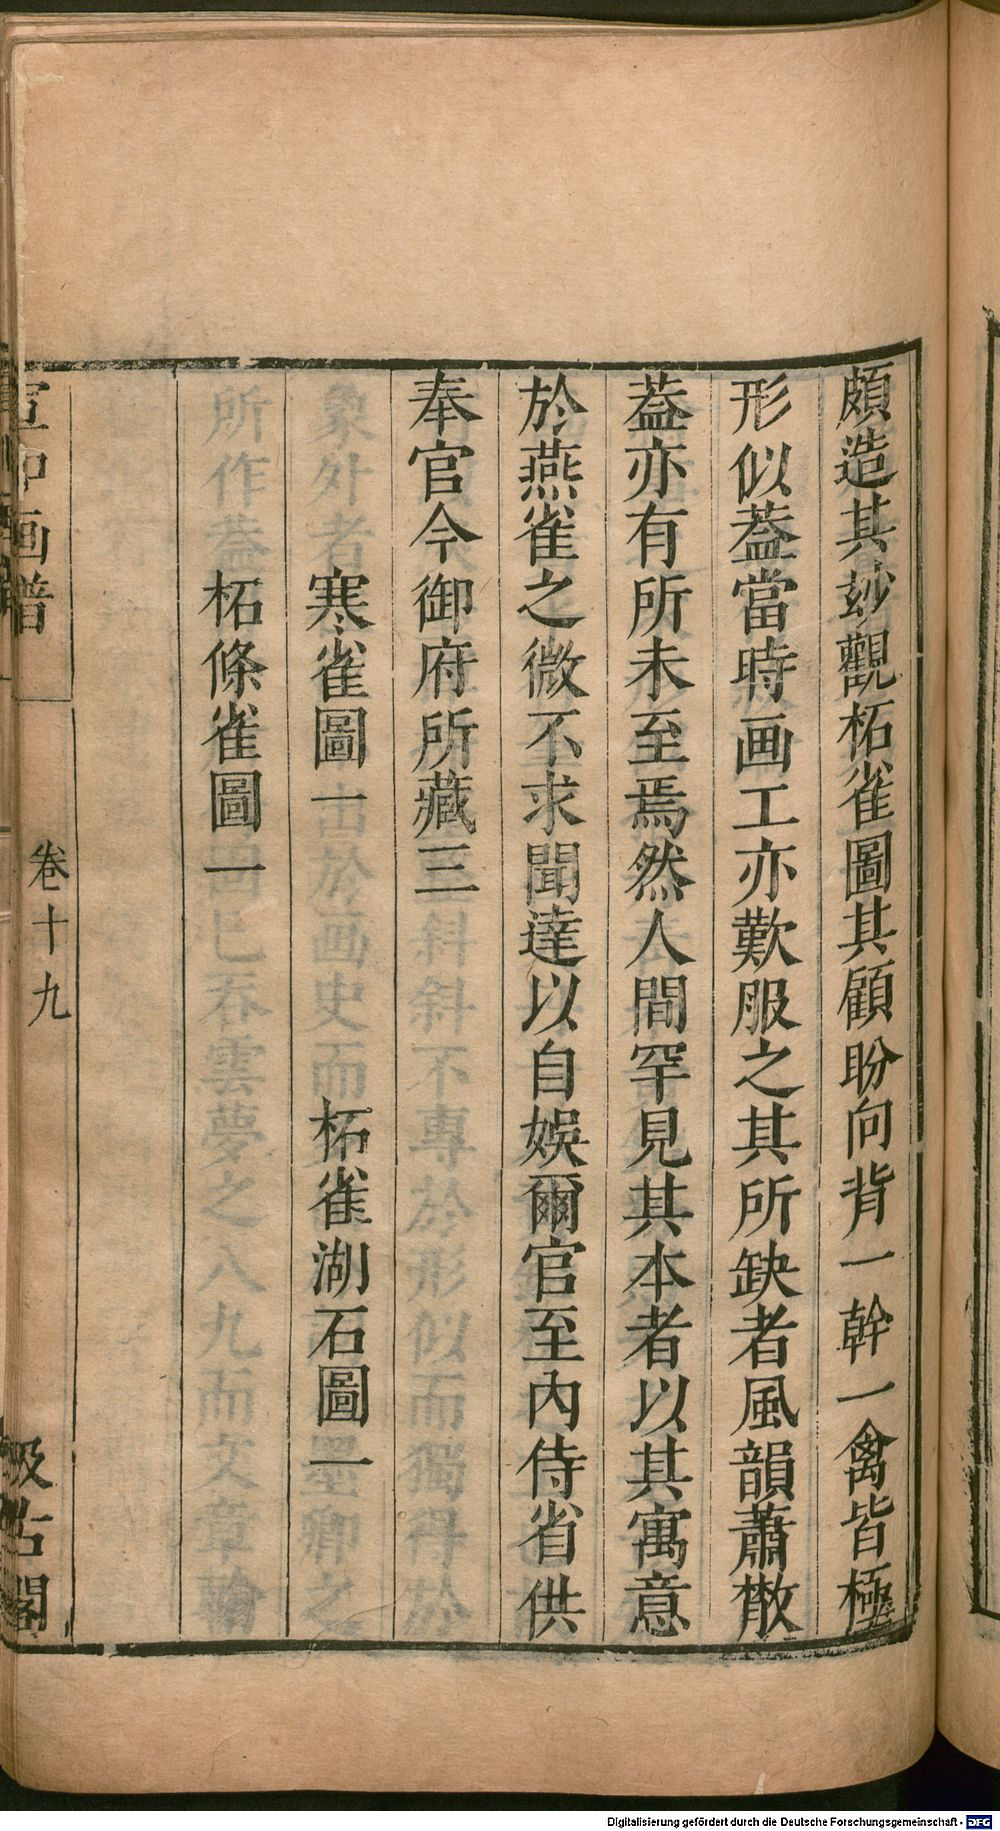 頗造其妙觀柘雀圖其顧盼向背一幹一禽皆極
形似葢當時画工亦歎服之其所缺者風韻蕭散
葢亦有所未至焉然人間罕見其本者以其寓意
於燕雀之微不求聞達以自娛爾官至內侍省供
奉官今御府所藏三
寒雀圖一　柘雀湖石圖一
柘條雀圖一
画譜　卷十九　汲古閣
Digitalisierung gefördert durch die Deutsche Forschungsgemeinschaft - DFG